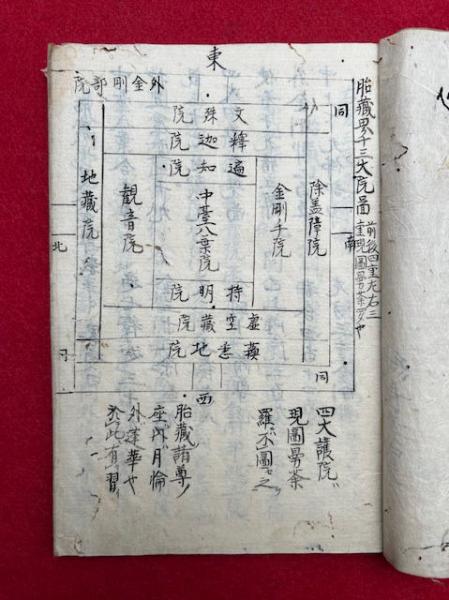 胎藏界十三大院圖 前後四重左右三
重現圖曼荼羅也
東
外金剛部院
同
文殊院
釋迦院
遍知院
中䑓八葉院
持明院
虛空藏院
蘇悉地院
金剛手院
除盖障院
觀音院
地藏院
南
北
西
同
同
四大護院
現圖曼荼
羅不圖之
胎藏諸尊
座八月輪
外蓮華也